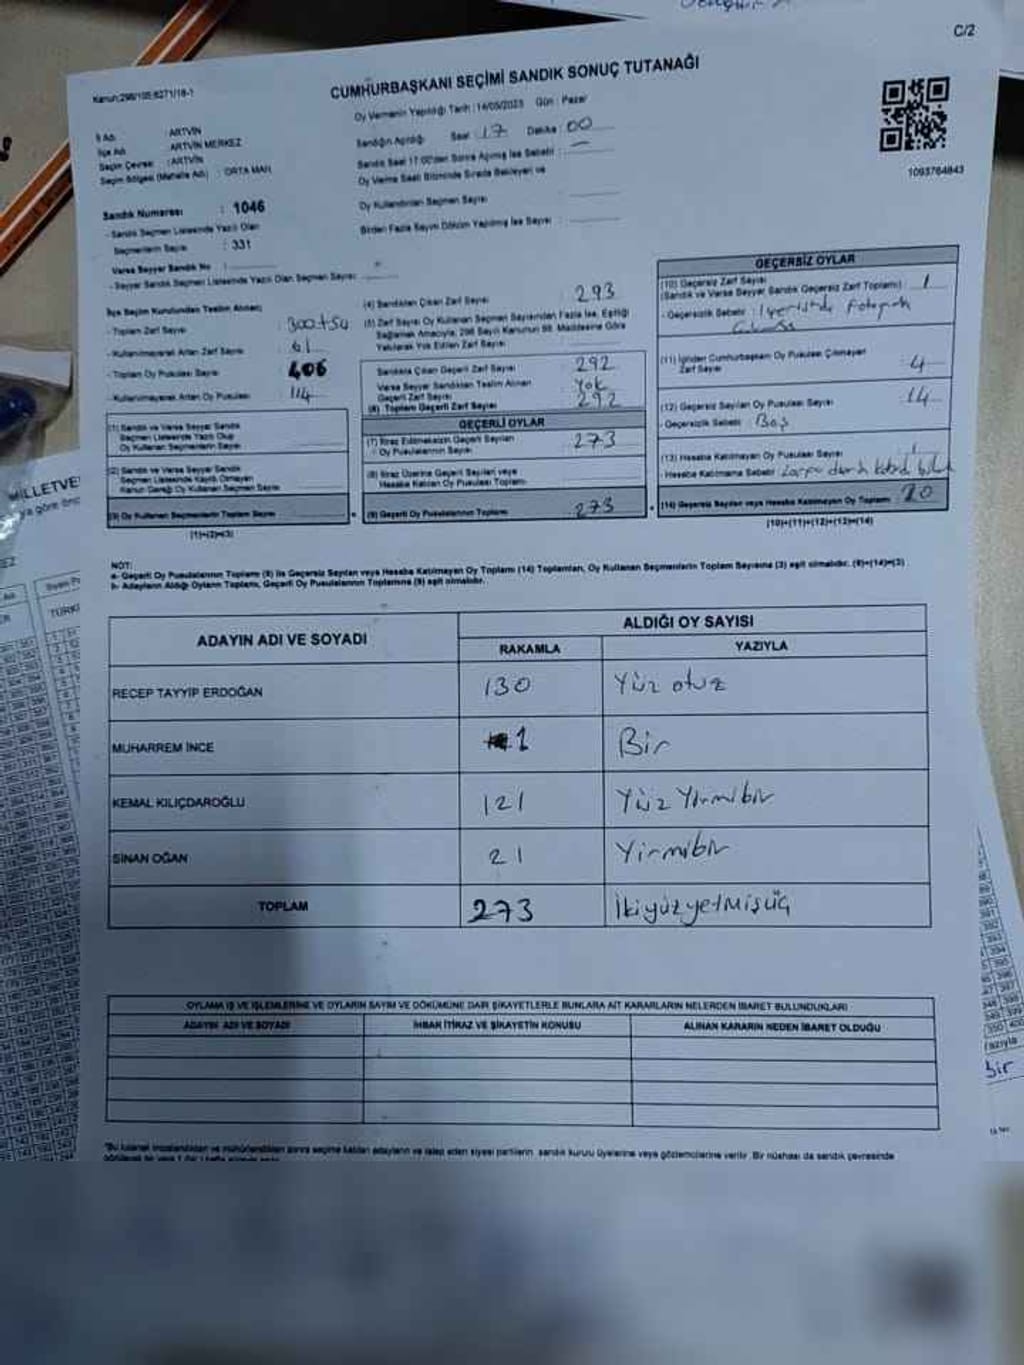 C/2
CUMHURBAŞKANI SEÇİMİ SANDIK SONUÇ TUTANAĞI
Kanun:298/105;6271/18-1
Oy Vermenin Yapıldığı Tarih :14/05/2023 Gün : Pazar
Sandığın Açıldığı Saat : 17 Dakika : 00
Sandık Saat 17:00'den Sonra Açılmış İse Sebebi :
Oy Verme Saati Bitiminde Sırada Bekleyen ve
Oy Kullandırılan Seçmen Sayısı
Birden Fazla Sayım Döküm Yapılmış İse Sayısı :
1093764843
İl Adı : ARTVİN
İlçe Adı : ARTVİN MERKEZ
Seçim Çevresi : ARTVİN
Seçim Bölgesi (Mahalle Adı) : ORTA MAH.
Sandık Numarası : 1046
- Sandık Seçmen Listesinde Yazılı Olan
Seçmenlerin Sayısı : 331
Varsa Seyyar Sandık No :
- Seyyar Sandık Seçmen Listesinde Yazılı Olan Seçmen Sayısı :
İlçe Seçim Kurulundan Teslim Alınan;
- Toplam Zarf Sayısı : 300+54
- Kullanılmayarak Artan Zarf Sayısı : 61
- Toplam Oy Pusulası Sayısı : 406
- Kullanılmayarak Artan Oy Pusulası : 114
(1) Sandık ve Varsa Seyyar Sandık
Seçmen Listesinde Yazılı Olup
Oy Kullanan Seçmenlerin Sayısı
(2) Sandık ve Varsa Seyyar Sandık
Seçmen Listesinde Kayıtlı Olmayan
Kanun Gereği Oy Kullanan Seçmen Sayısı
(3) Oy Kullanan Seçmenlerin Toplam Sayısı
(1)+(2)=(3)
(4) Sandıktan Çıkan Zarf Sayısı : 293
(5) Zarf Sayısı Oy Kullanan Seçmen Sayısından Fazla İse, Eşitliği
Sağlamak Amacıyla, 298 Sayılı Kanunun 98. Maddesine Göre
Yakılarak Yok Edilen Zarf Sayısı :
Sandıkta Çıkan Geçerli Zarf Sayısı : 292
Varsa Seyyar Sandıktan Teslim Alınan
Geçerli Zarf Sayısı : Yok
(6) Toplam Geçerli Zarf Sayısı : 292
GEÇERLİ OYLAR
(7) İtiraz Edilmeksizin Geçerli Sayılan
Oy Pusulalarının Sayısı : 273
(8) İtiraz Üzerine Geçerli Sayılan veya
Hesaba Katılan Oy Pusulası Toplamı
(9) Geçerli Oy Pusulalarının Toplamı : 273
GEÇERSİZ OYLAR
(10) Geçersiz Zarf Sayısı
(Sandık ve Varsa Seyyar Sandık Geçersiz Zarf Toplamı) : 1
- Geçersizlik Sebebi : İçerisinde fotoğrafı
(11) İçinden Cumhurbaşkanı Oy Pusulası Çıkmayan
Zarf Sayısı : 4
(12) Geçersiz Sayılan Oy Pusulası Sayısı : 14
- Geçersizlik Sebebi : Boş
(13) Hesaba Katılmayan Oy Pusulası Sayısı : 1
- Hesaba Katılmama Sebebi :
(14) Geçersiz Sayılan veya Hesaba Katılmayan Oy Toplamı : 20
(10)+(11)+(12)+(13)=(14)
NOT:
a- Geçerli Oy Pusulalarının Toplamı (9) ile Geçersiz Sayılan veya Hesaba Katılmayan Oy Toplamı (14) Toplamları, Oy Kullanan Seçmenlerin Toplam Sayısına (3) eşit olmalıdır. (9)+(14)=(3)
b- Adayların Aldığı Oyların Toplamı, Geçerli Oy Pusulalarının Toplamına (9) eşit olmalıdır.
ADAYIN ADI VE SOYADI ALDIĞI OY SAYISI
RAKAMLA YAZIYLA
RECEP TAYYİP ERDOĞAN 130 Yüz otuz
MUHARREM İNCE 1 Bir
KEMAL KILIÇDAROĞLU 121 Yüz Yirmibir
SİNAN OĞAN 21 Yirmibir
TOPLAM 273 İkiyüzyetmişüç
OYLAMA İŞ VE İŞLEMLERİNE VE OYLARIN SAYIM VE DÖKÜMÜNE DAİR ŞİKAYETLERLE BUNLARA AİT KARARLARIN NELERDEN İBARET BULUNDUKLARI
ADAYIN ADI VE SOYADI İHBAR İTİRAZ VE ŞİKAYETİN KONUSU ALINAN KARARIN NEDEN İBARET OLDUĞU
*Bu tutanak imzalandıktan ve mühürlendikten sonra seçime katılan adayların ve talep eden siyasi partilerin, sandık kurulu üyelerine veya gözlemcilerine verilir. Bir nüshası da sandık çevresinde